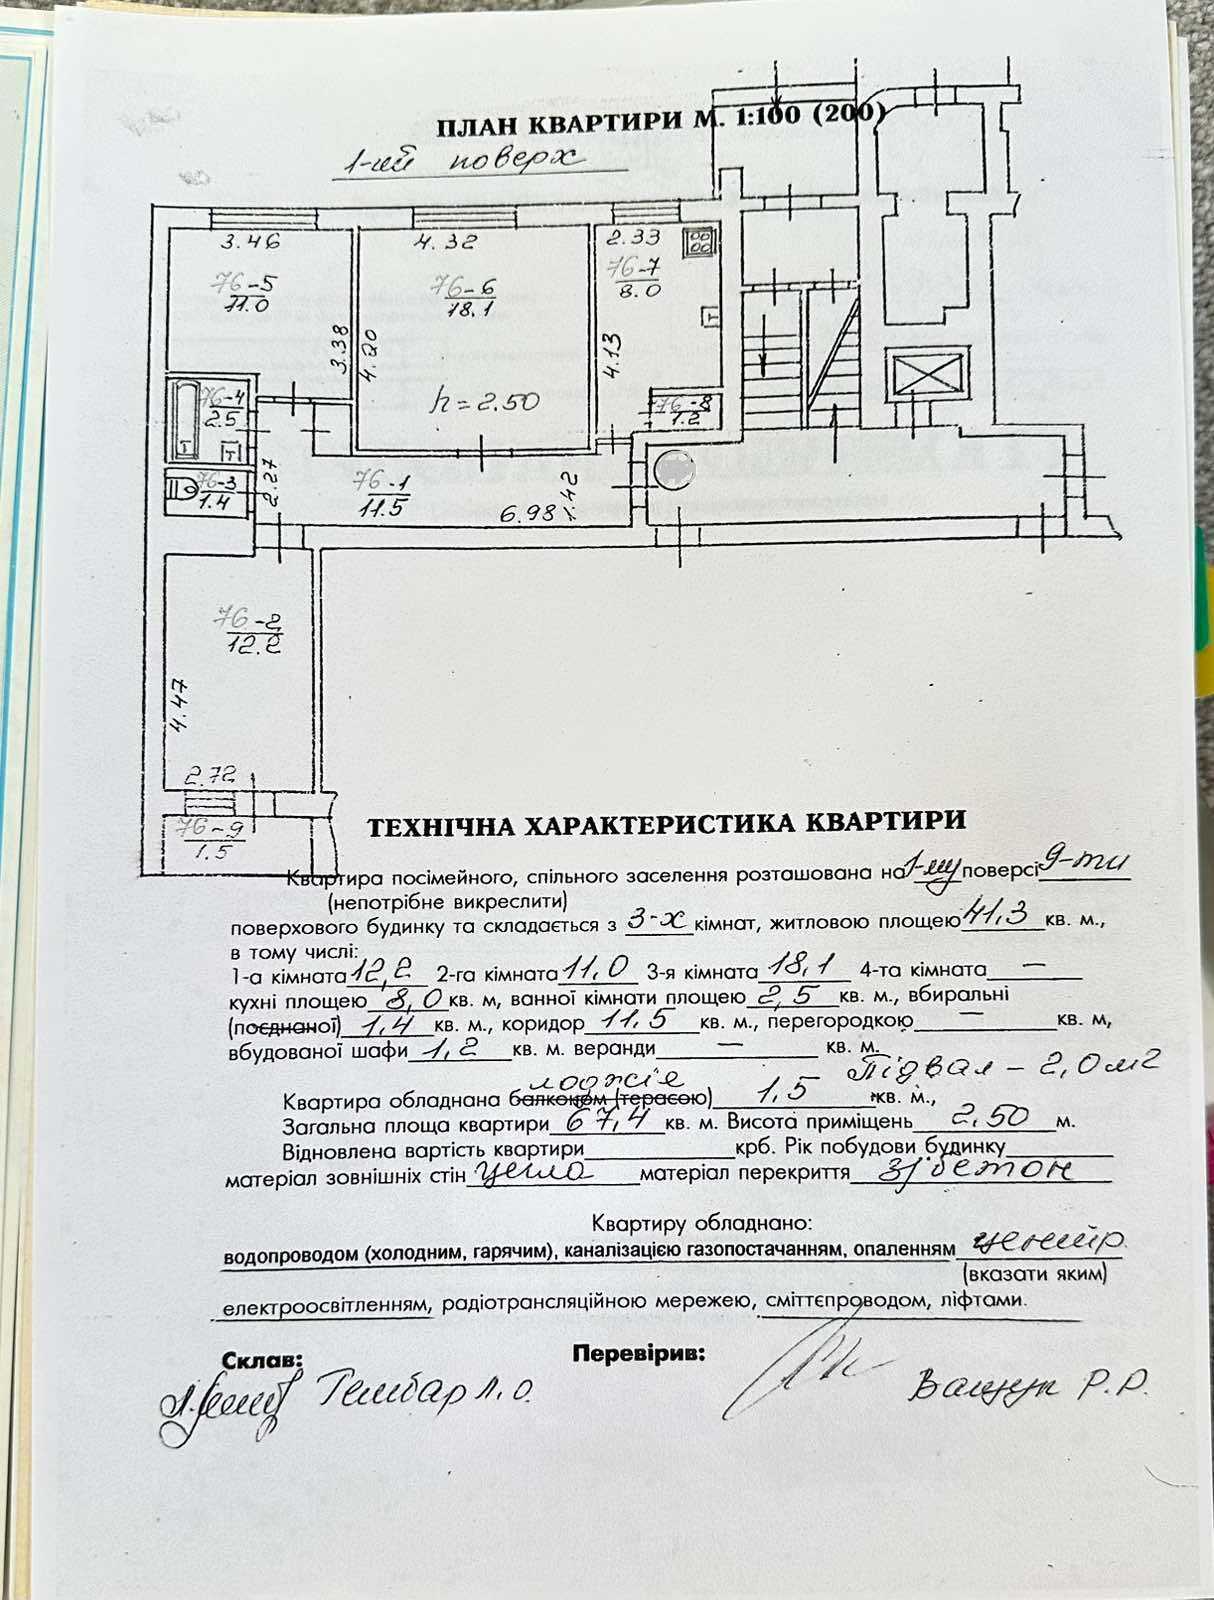 ПЛАН КВАРТИРИ М. 1:100 (200)
1-ий поверх
3.46 4.32 2.33
76-5 76-6 76-7
11.0 18.1 8.0
3.38 4.20 4.13
h = 2.50
76-4 76-8
2.5 1.2
Т Т Т
76-3 2.27 76-1
1.4 11.5 6.98 1.42
76-2
12.2
4.47
2.72
76-9
1.5
ТЕХНІЧНА ХАРАКТЕРИСТИКА КВАРТИРИ
Квартира посімейного, спільного заселення розташована на 1-му поверсі 9-ти
(непотрібне викреслити)
поверхового будинку та складається з 3-х кімнат, житловою площею 41,3 кв. м.,
в тому числі:
1-а кімната 12,2 2-га кімната 11,0 3-я кімната 18,1 4-та кімната —
кухні площею 8,0 кв. м, ванної кімнати площею 2,5 кв. м., вбиральні
(поєднаної) 1,4 кв. м., коридор 11.5 кв. м., перегородкою — кв. м,
вбудованої шафи 1,2 кв. м. веранди — кв. м.
Підвал – 2,0 м2
лоджія
Квартира обладнана балконом (терасою) 1,5 кв. м.,
Загальна площа квартири 67,4 кв. м. Висота приміщень 2,50 м.
Відновлена вартість квартири крб. Рік побудови будинку
матеріал зовнішніх стін цегла матеріал перекриття з/бетон
Квартиру обладнано:
водопроводом (холодним, гарячим), каналізацією газопостачанням, опаленням центр.
(вказати яким)
електроосвітленням, радіотрансляційною мережею, сміттєпроводом, ліфтами.
Склав: Перевірив:
Гембар Л.О. Ващук Р.Р.